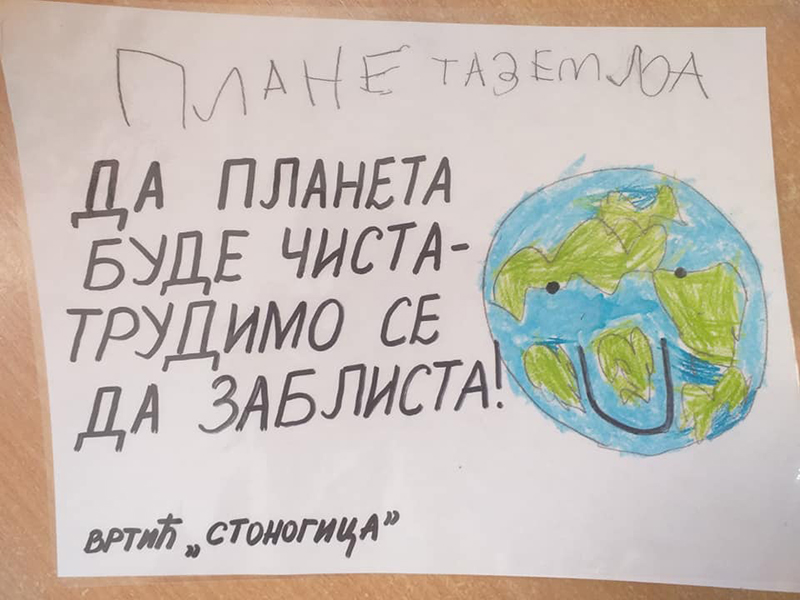 ПЛАНЕ ТАЗЕМЉА
ДА ПЛАНЕТА
БУДЕ ЧИСТА-
ТРУДИМО СЕ
ДА ЗАБЛИСТА!
ВРТИЋ „СТОНОГИЦА”